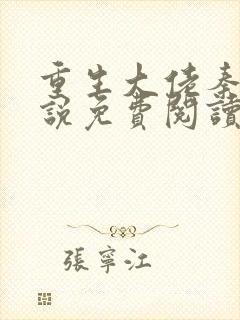 重生大佬秦
說免費閱讀
張寧江